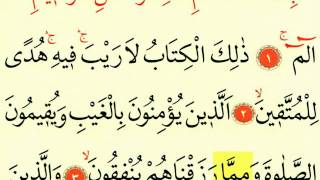 الٓمٓ ۚ ﴿١﴾ ذٰلِكَ الْكِتَابُ لَا رَيْبَ ۚ فٖيهِ ۚ هُدًى
لِلْمُتَّقٖينَ ۙ ﴿٢﴾ اَلَّذٖينَ يُؤْمِنُونَ بِالْغَيْبِ وَيُقٖيمُونَ
الصَّلٰوةَ وَمِمَّا رَزَقْنَاهُمْ يُنْفِقُونَ ۙ ﴿٣﴾ وَالَّذٖينَ